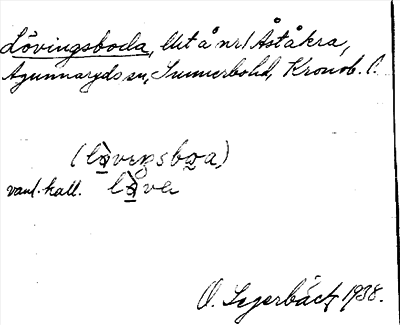 Lövingsboda, litt å nr 1 Åståkra,
Agunnaryds sn, Sunnerbohd, Kronob. l.
(lòvɩŋsboa,)
vanl. kall. lòvɩ
O. Segerbäck 1938.